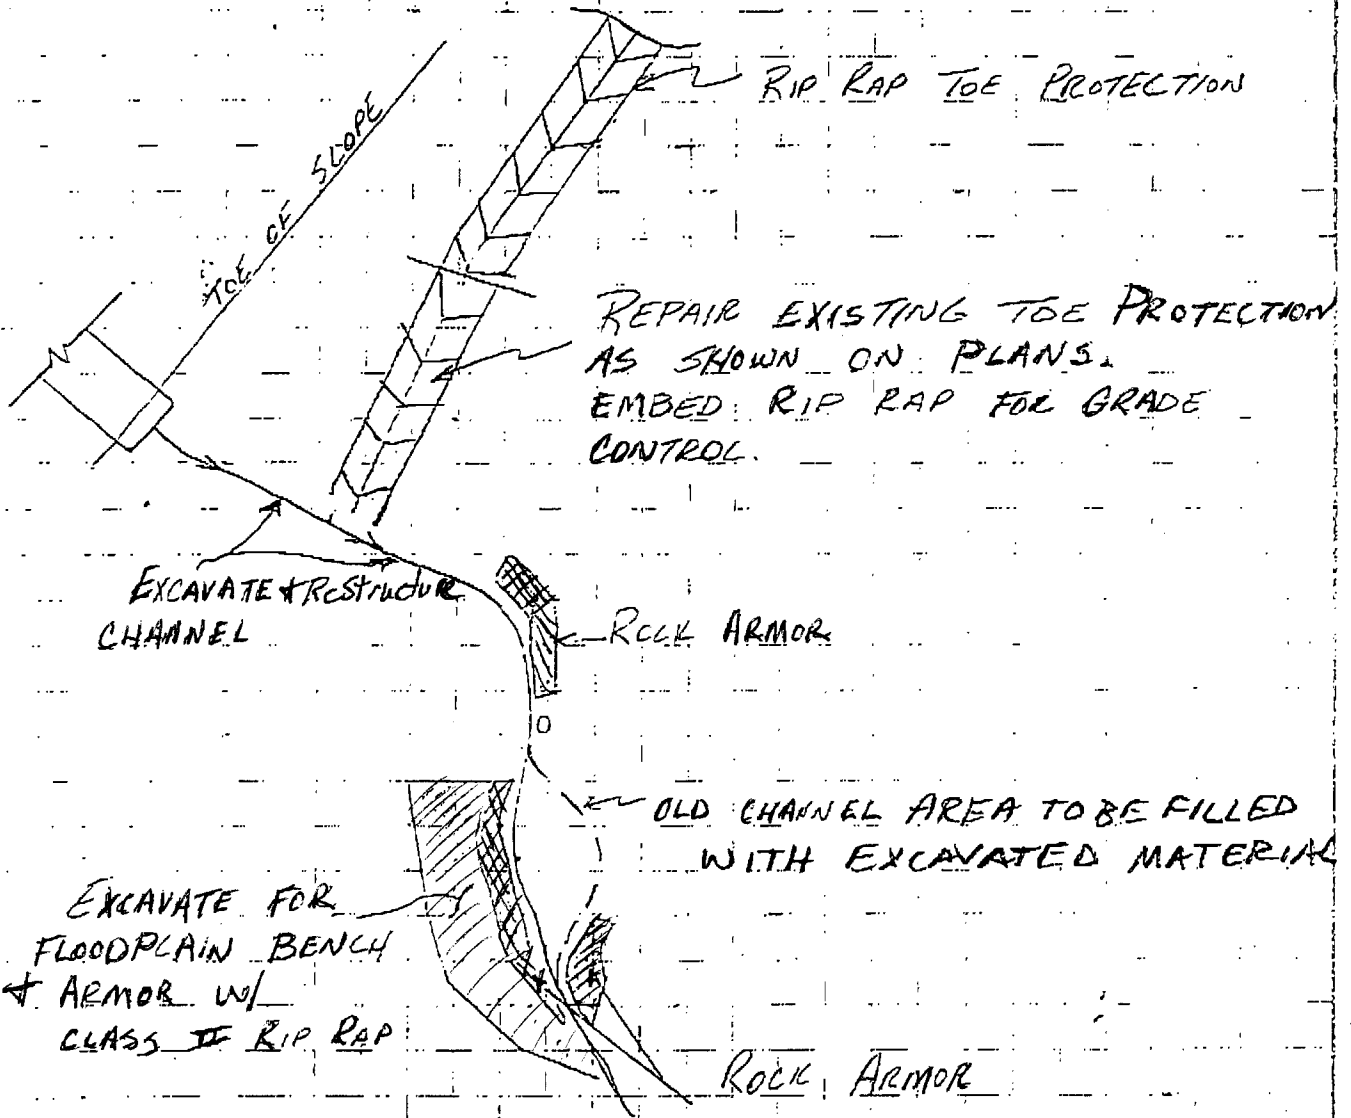 RIP RAP TOE PROTECTION
TOE OF SLOPE
REPAIR EXISTING TOE PROTECTION
AS SHOWN ON PLANS.
EMBED RIP RAP FOR GRADE
CONTROL.
EXCAVATE + ReStructure
CHANNEL
ROCK ARMOR
OLD CHANNEL AREA TO BE FILLED
WITH EXCAVATED MATERIAL
EXCAVATE FOR
FLOODPLAIN BENCH
+ ARMOR W/
CLASS II RIP RAP
ROCK ARMOR